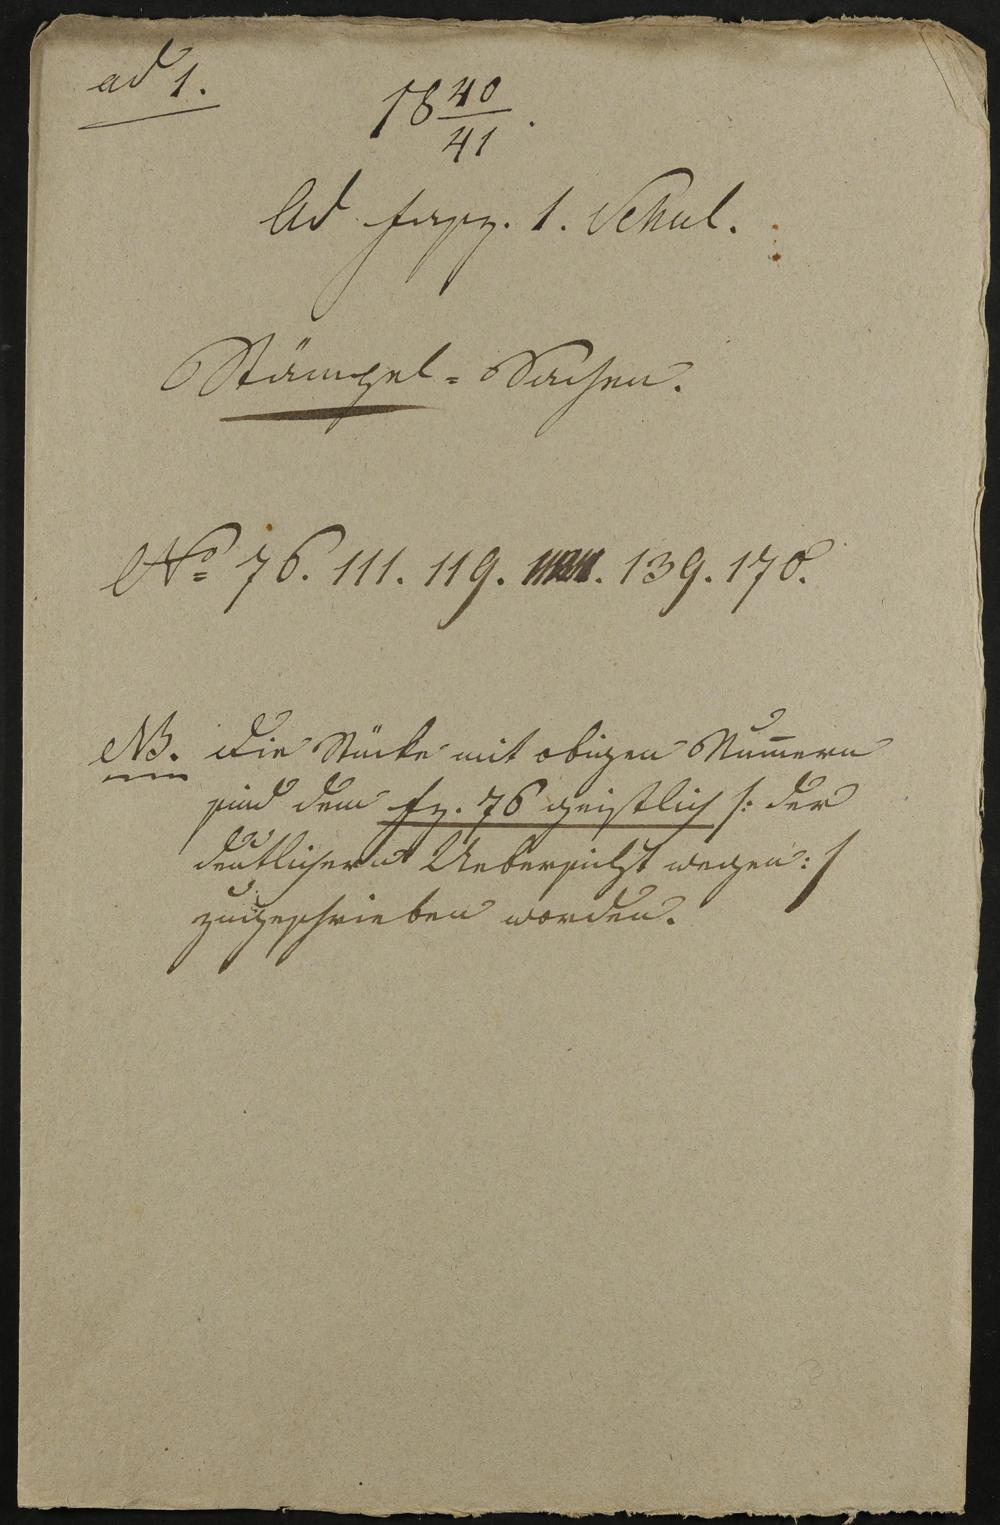 ad 1.
18 40/41.
Ad fasz. 1. Schul.
Stämpel = Sachen.
No 76. 111. 119. 139. 170.
NB. Die Stücke mit obigen Num̄ern
sind dem fz. 76 geistlich /: der
deutlichern Uebersicht wegen :/
zugeschrieben worden.